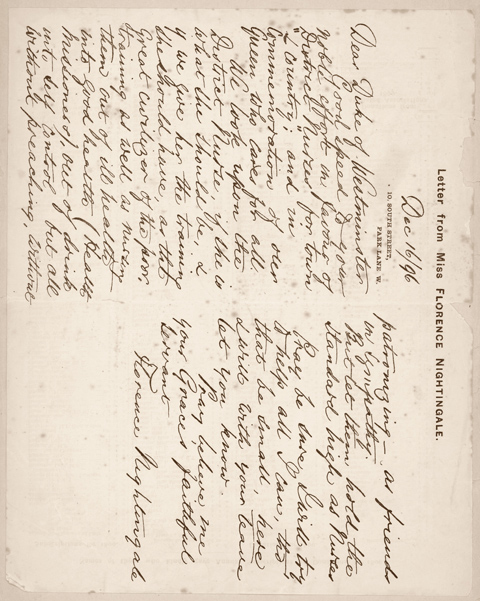 Letter from Miss FLORENCE NIGHTINGALE.
Dec 16/96
10, SOUTH STREET,
PARK LANE. W.
Dear Duke of Westminster
Good speed to your
noble effort in favour of
"District Nurses" for town
& country; and in
Commemoration of our
Queen who cares for all.
We look upon the
District Nurse, if she is
what she should be, &
if we give her the training
she should have, as the
great civilizer of the poor,
training as well as nursing
them out of ill health
into good health, (Health
Missioners), out of drink
into self control but all
without preaching, without
patronizing - as friends
in sympathy.
But let them hold the
standard high as Nurses
Pray be sure I will try
to help all I can, tho'
that be small, here
I will with your leave
let you know.
Pray believe me
your Grace's faithful
Servant
Florence Nightingale